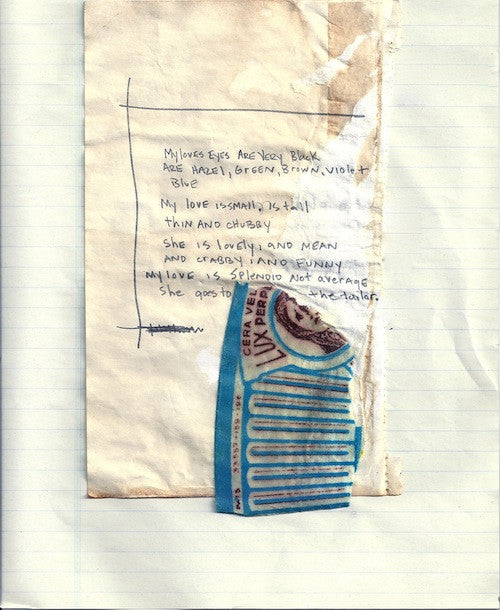 My loves Eyes Are Very Black
ARE HAZEL, GREEN, Brown, Violet
Blue
My love is small, is tall
thin AND CHUBBY
She is lovely, AND MEAN
AND CRABBY, AND FUNNY
My love is Splendid Not average
She goes to the tailor.
CERA VE
LUX PERP